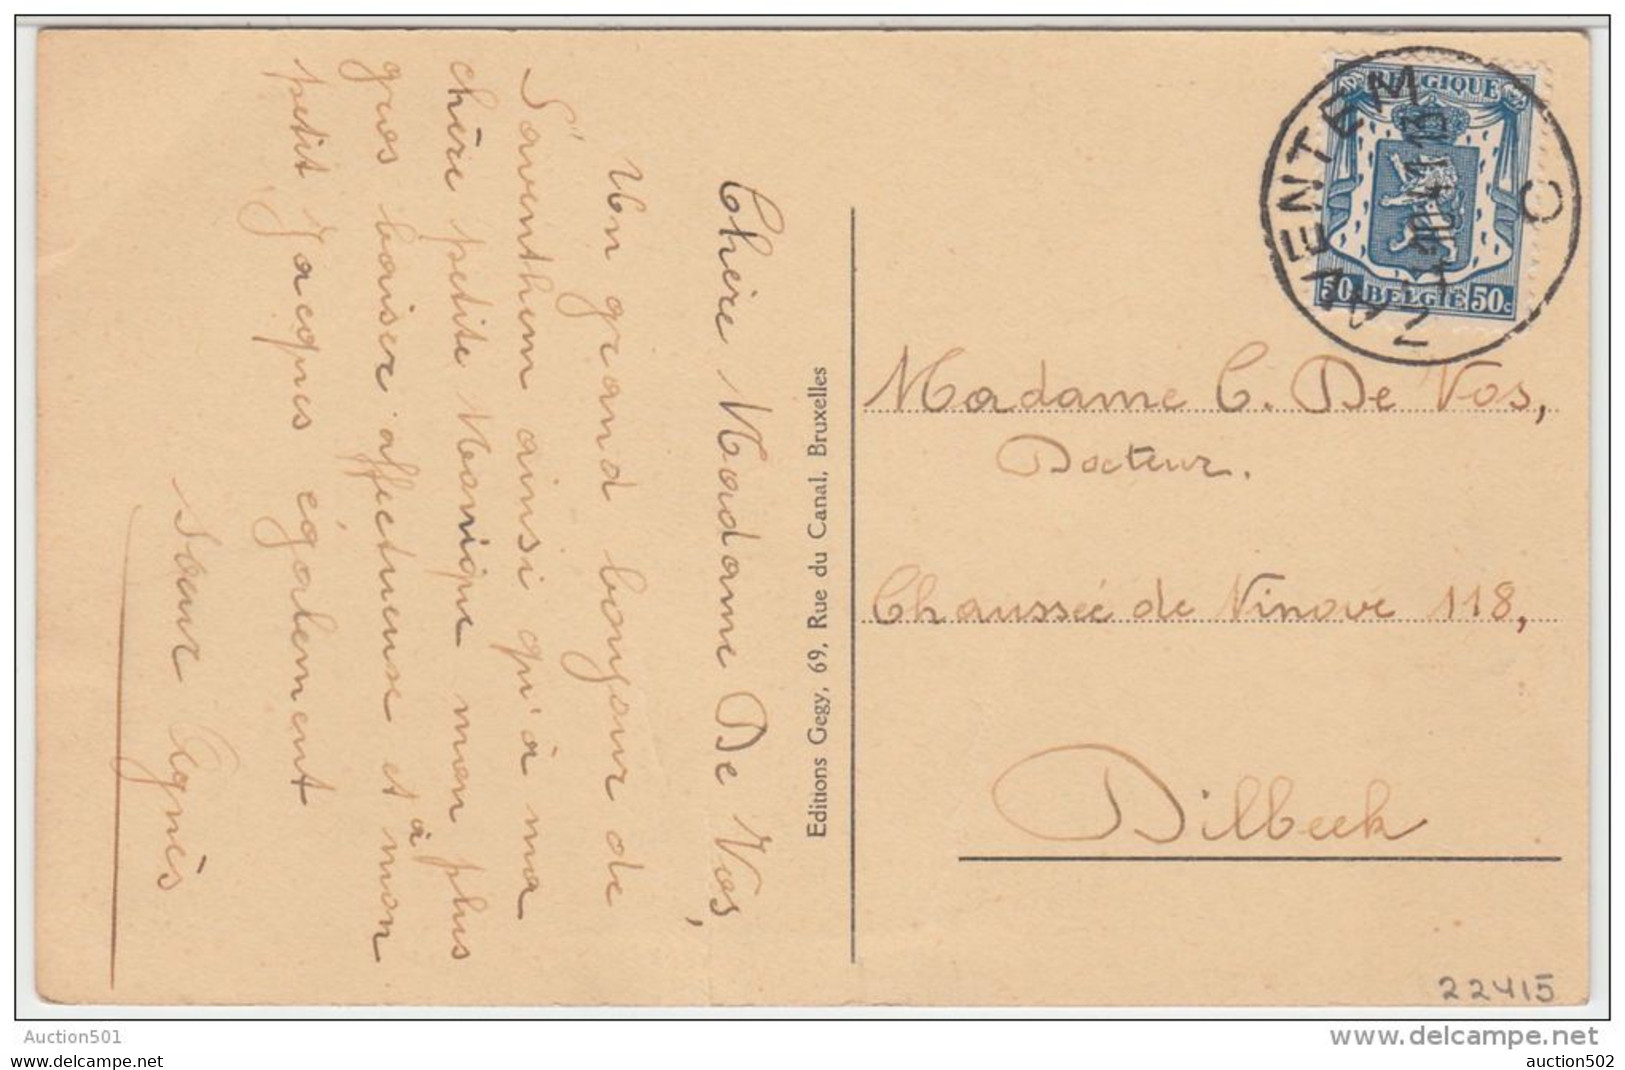 Chère Madame De Vos,
Un grand bonjour de
Saventhem ainsi qu'à ma
chère petite Monique mon plus
gros baiser affectueuse et à mon
petit Jacques également
Soeur Agnès
Editions Gegy, 69, Rue du Canal, Bruxelles
BELGIQUE
50 BELGIË 50c
ZAVENTEM
C
Madame C. De Vos,
Docteur.
Chaussée de Ninove 118,
Dilbeek
22415
Auction501
delcampe.net
www.delcampe.net
auction502